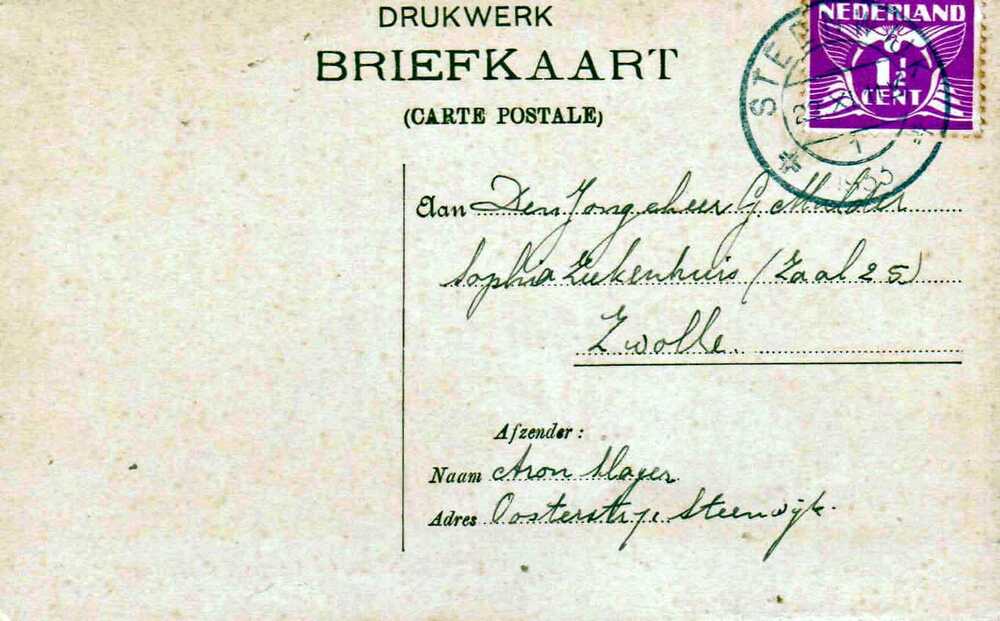 DRUKWERK
BRIEFKAART
(CARTE POSTALE)
NEDERLAND
1½
CENT
1933
Aan Den Jongeheer G Mulder
Sophia Ziekenhuis (Zaal 25)
Zwolle.
Afzender:
Naam Aron Mayer
Adres Oosterstr, Steenwijk.